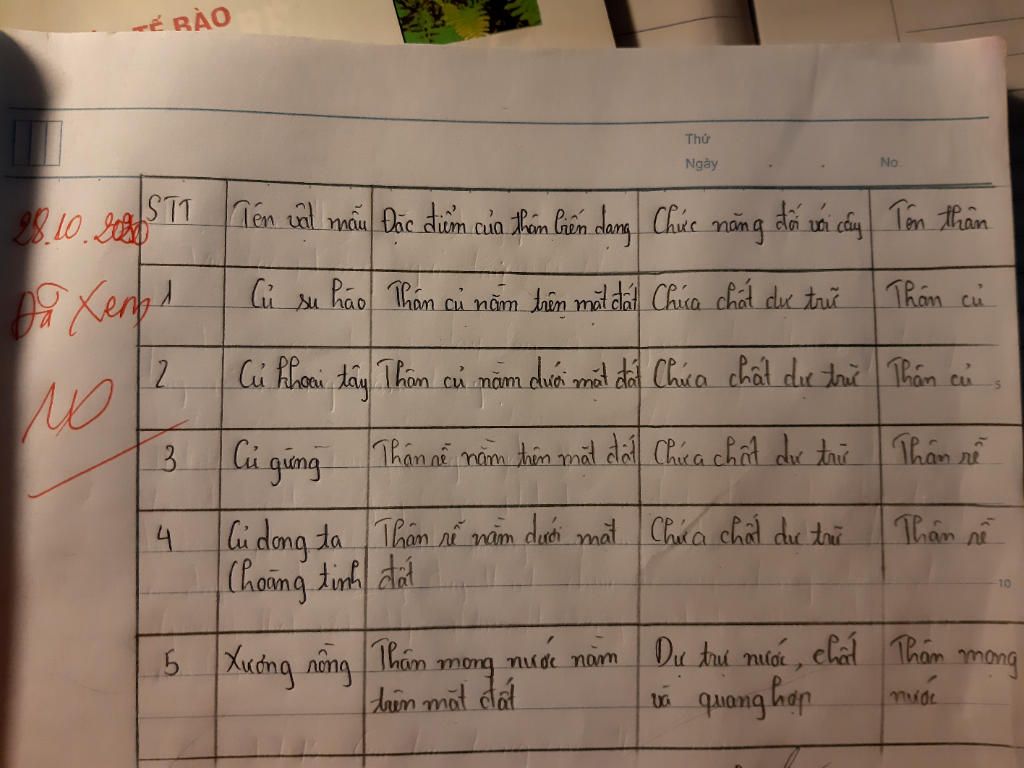 TẾ BÀO
Thứ
Ngày . . No.
28.10.2020
Đã Xem
STT Tên vật mẫu Đặc điểm của thân biến dạng Chức năng đối với cây Tên thân
1 Củ su hào Thân củ nằm trên mặt đất Chứa chất dự trữ Thân củ
2 Củ khoai tây Thân củ nằm dưới mặt đất Chứa chất dự trữ Thân củ
5
3 Củ gừng Thân rễ nằm trên mặt đất Chứa chất dự trữ Thân rễ
4 Củ dong ta Thân rễ nằm dưới mặt Chứa chất dự trữ Thân rễ
(hoàng tinh đất
10
5 Xương rồng Thân mọng nước nằm Dự trự nước, chất Thân mọng
trên mặt đất và quang hợp nước